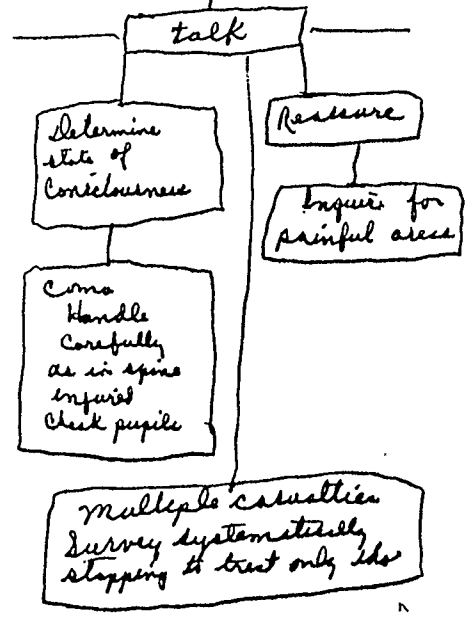 talk
Determine
state of
Consciousness
Reassure
Inquire for
painful areas
Coma
Handle
Carefully
as in spine
injured
Check pupils
Multiple casualties
Survey systematically
stopping to treat only